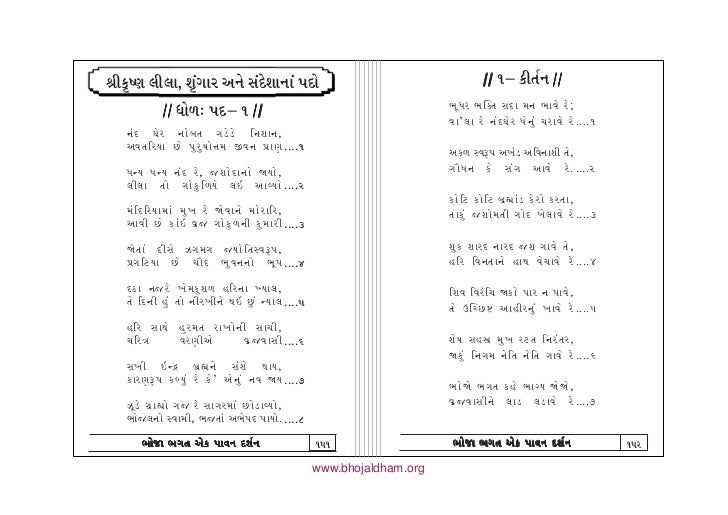 શ્રીકૃષ્ણ લીલા, શૃંગાર અને સંદેશાનાં પદો
// ધોળઃ પદ– ૧ //
નંદ ઘેર નોબત ગડેડે નિશાન,
અવતરિયા છે પુરુષોત્તમ જીવન પ્રાણ....૧
ધન્ય ધન્ય નંદ રે, જશોદાનો જાયો,
લીલા તો ગોકુળિયે લઈ આવ્યો....૨
મંદિરિયામાં મુખ રે જોવાને મોરારિ,
આવી છે કાંઈ વ્રજ ગોકુળની કુમારી....૩
જોતાં દીસે ઝગમગ જ્યોતિસ્વરૂપ,
પ્રગટિયા છે ચૌદ ભુવનનો ભૂપ....૪
દઠા નજરે ખેમકુશળ હરિના ખ્યાલ,
તે દિનની હું તો નીરખીને થઈ છું ન્યાલ....૫
હરિ સાથે હુરમત રાખોની સાચી,
ચરિત્ર વરણીએ વ્રજવાસી....૬
સખી ઇન્દ્ર બ્રહ્માને સંશે થાય,
કારણરૂપ કળ્યું રે કે' એનું નવ જાય....૭
ઝૂડે ગ્રાહ્યો ગજ રે સાગરમાં છોડાવ્યો,
ભોજલનો સ્વામી, ભજતાં અભેપદ પાયો.....૮
ભોજા ભગત એક પાવન દર્શન ૧૫૧
// ૧– કીર્તન //
ભૂધર ભક્તિ સદા મન ભાવે રે;
વા'લા રે નંદઘેર ધેનું ચરાવે રે....૧
અકળ સ્વરૂપ અખંડ અવિનાશી તે,
ગૌધન કે સંગ આવે રે.....૨
કોટિ કોટિ બ્રહ્માંડ કેરો કરતા,
તાકું જશોમતી ગોદ ખેલાવે રે....૩
શુક શારદ નારદ જશ ગાવે તે,
હરિ વિનતાને હાથ વેચાવે રે....૪
શિવ વિરંચિ જાકો પાર ન પાવે,
તે ઉચ્છિષ્ટ આહીરનું ખાવે રે....૫
શેષ સહસ્ર મુખ રટત નિરંતર,
જાકું નિગમ નેતિ નેતિ ગાવે રે....૬
ભોજો ભગત કહે ભાગ્ય જોજો,
વ્રજવાસીને લાડ લડાવે રે....૭
ભોજા ભગત એક પાવન દર્શન ૧૫૨
www.bhojaldham.org